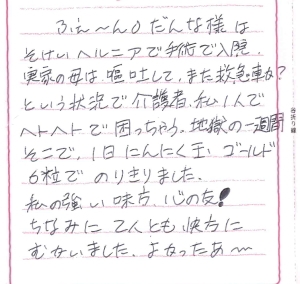 ふぇ〜ん0だんな様は
そけいヘルニアで手術で入院、
実家の母は、嘔吐して、また救急車か?
という状況で介護者、私1人で
ヘトヘトで困っちゃう。地獄の一週間
そこで、1日にんにく玉ゴールド
6粒でのりきりました。
私の強い味方、心の友!
ちなみに2人とも快方に
むかいました。よかったあ〜
谷折り線